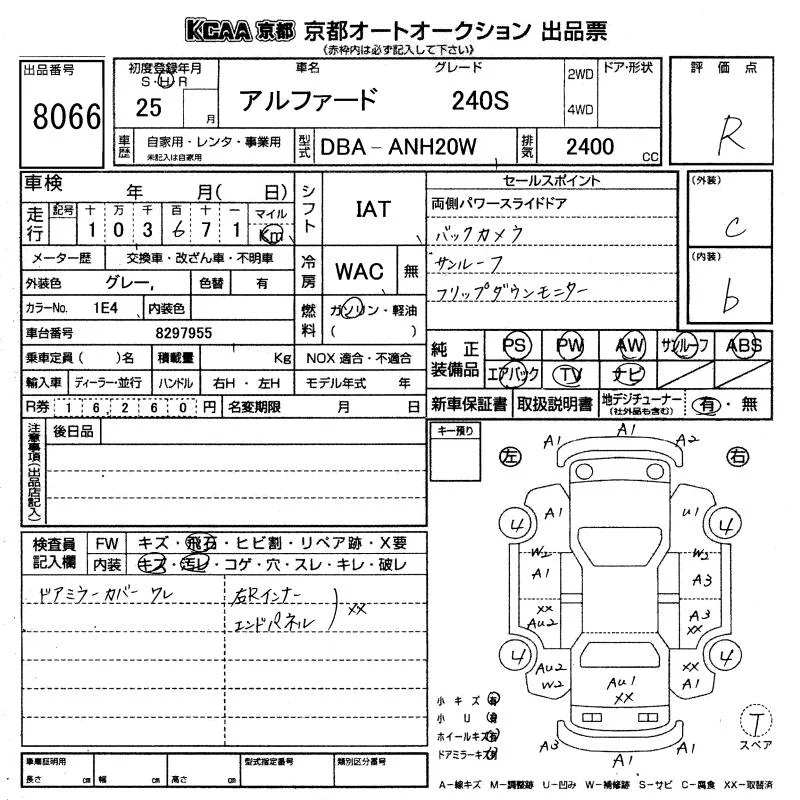 KCAA 京都 京都オートオークション 出品票
《赤枠内は必ず記入して下さい》
出品番号
8066
初度登録年月
S・H・R
25 月
車名
アルファード
グレード
240S
2WD
4WD
ドア・形状
評価点
R
車歴
自家用・レンタ・事業用
未記入は自家用
型式
DBA-ANH20W
排気
2400 CC
車検 年 月( 日)
走行
記号 十 万 千 百 十 一 マイル
1 0 3 6 7 1 Km
シフト
IAT
メーター歴 交換車・改ざん車・不明車
冷房
WAC 無
外装色 グレー, 色替 有
カラーNo. 1E4 内装色
燃料
ガソリン・軽油
( )
車台番号 8297955
乗車定員( )名 積載量 Kg NOX 適合・不適合
輸入車 ディーラー・並行 ハンドル 右H・左H モデル年式 年
R券 1 6, 2 6 0 円 名変期限 月 日
セールスポイント
両側パワースライドドア
バックカメラ
サンルーフ
フリップダウンモニター
(外装)
C
(内装)
b
純正装備品
PS PW AW サンルーフ ABS
エアバック TV ナビ
新車保証書 取扱説明書 地デジチューナー
(社外品も含む)
有・無
注意事項(出品店記入)
後日品
検査員記入欄
FW キズ・飛石・ヒビ割・リペア跡・X要
内装 キズ・汚レ・コゲ・穴・スレ・キレ・破レ
ドアミラーカバー ワレ
右Rインナー
エンドパネル
XX
キー預り
左
右
A1
A1
A2
A1
U1
4
4
W2
W2
A1
A3
XX
AU2
A3
XX
4
4
AU2
W2
AU1
XX
XX
A1
A3
A1
A1
小キズ 有
小U 有
ホイールキズ 有
ドアミラーキズ 有
T
スペア
A-線キズ M-調整跡 U-凹み W-補修跡 S-サビ C-腐食 XX-取替済
車庫証明用
長さ cm 幅 cm 高さ cm
型式指定番号
類別区分番号